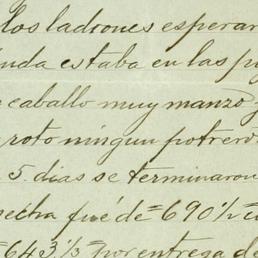 los ladrones esperar
nda estaba en las p
caballo muy manzo y
roto ningun potrero
5. dias se terminaron
pecha fué de = 690½ = c
= 643⅓ = por entrega de